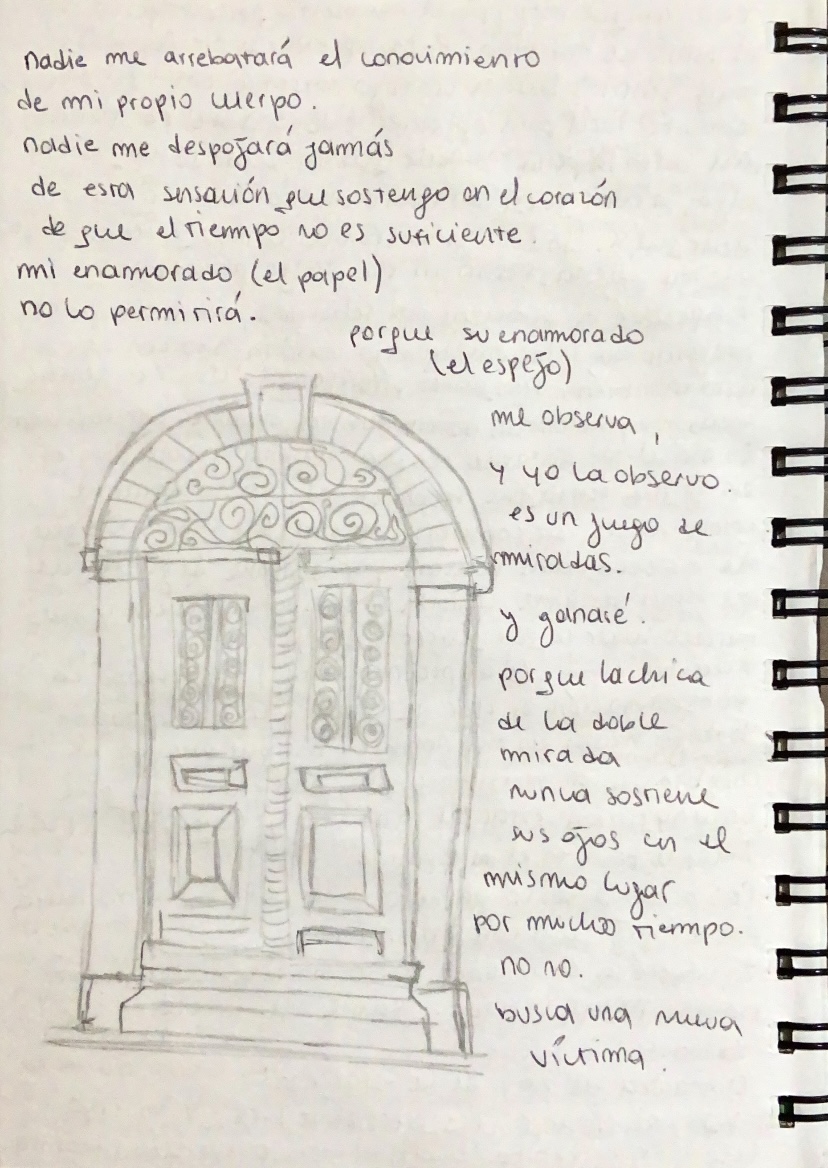 nadie me arrebatará el conocimiento
de mi propio cuerpo.
nadie me despojará jamás
de esta sensación que sostengo en el corazón
de que el tiempo no es suficiente.
mi enamorado (el papel)
no lo permitirá.
porque su enamorado
(el espejo)
me observa,
y yo la observo.
es un juego de
miradas.
y ganaré.
porque la chica
de la doble
mirada
nunca sostiene
sus ojos en el
mismo lugar
por mucho tiempo.
no no.
busca una nueva
víctima.